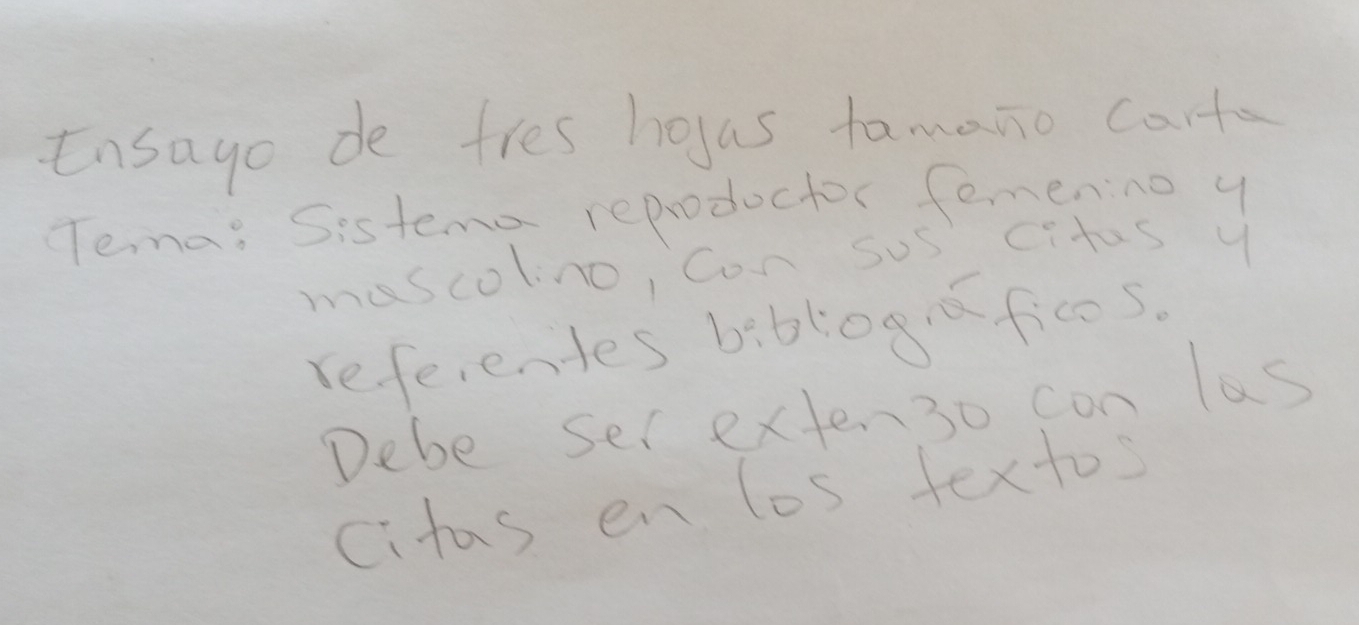 Ensayo de tres hojas tamaño carta
Tema: Sistema reproductor femenino y
mascolino, con sus citas y
referentes bibliográficos.
Debe ser extenzo con las
citas en los textos